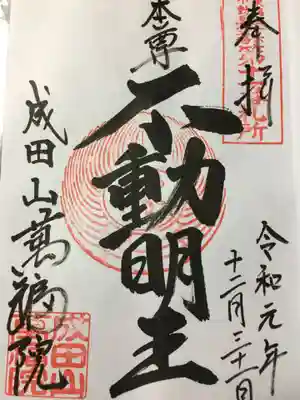 奉拝
令和元年
十二月三十一日
本尊
不動明王
成田山萬福院
成田山